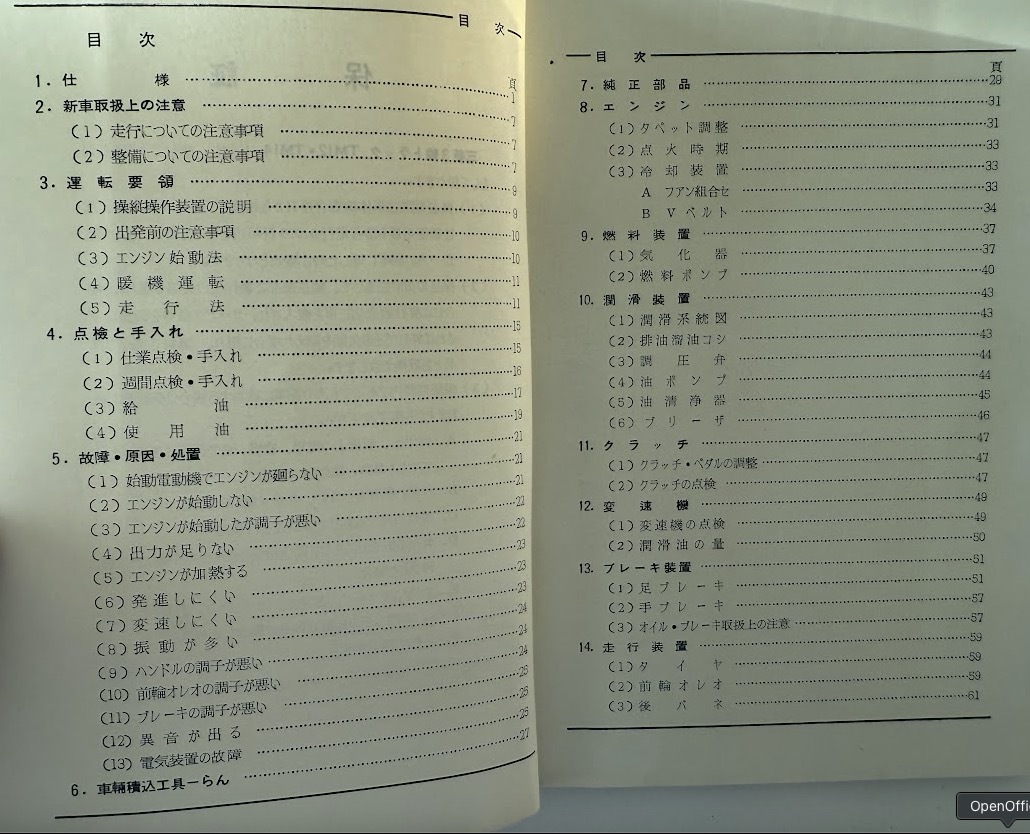 目次
目次
頁
1. 仕様 …… 1
2. 新車取扱上の注意 …… 7
(1) 走行についての注意事項 …… 7
(2) 整備についての注意事項 …… 7
3. 運転要領 …… 9
(1) 操縦操作装置の説明 …… 9
(2) 出発前の注意事項 …… 10
(3) エンジン始動法 …… 10
(4) 暖機運転 …… 11
(5) 走行法 …… 11
4. 点検と手入れ …… 15
(1) 仕業点検・手入れ …… 15
(2) 週間点検・手入れ …… 16
(3) 給油 …… 17
(4) 使用油 …… 19
5. 故障・原因・処置 …… 21
(1) 始動電動機でエンジンが廻らない …… 21
(2) エンジンが始動しない …… 21
(3) エンジンが始動したが調子が悪い …… 22
(4) 出力が足りない …… 22
(5) エンジンが加熱する …… 23
(6) 発進しにくい …… 23
(7) 変速しにくい …… 23
(8) 振動が多い …… 24
(9) ハンドルの調子が悪い …… 24
(10) 前輪オレオの調子が悪い …… 24
(11) ブレーキの調子が悪い …… 25
(12) 異音が出る …… 25
(13) 電気装置の故障 …… 25
6. 車輛積込工具一らん …… 27
目次
頁
7. 純正部品 …… 29
8. エンジン …… 31
(1) タペット調整 …… 31
(2) 点火時期 …… 33
(3) 冷却装置 …… 33
A フアン組合セ …… 33
B Vベルト …… 34
9. 燃料装置 …… 37
(1) 気化器 …… 37
(2) 燃料ポンプ …… 40
10. 潤滑装置 …… 43
(1) 潤滑系統図 …… 43
(2) 排油溜油コシ …… 43
(3) 調圧弁 …… 44
(4) 油ポンプ …… 44
(5) 油清浄器 …… 45
(6) ブリーザ …… 46
11. クラッチ …… 47
(1) クラッチ・ペダルの調整 …… 47
(2) クラッチの点検 …… 47
12. 変速機 …… 49
(1) 変速機の点検 …… 49
(2) 潤滑油の量 …… 50
13. ブレーキ装置 …… 51
(1) 足ブレーキ …… 51
(2) 手ブレーキ …… 57
(3) オイル・ブレーキ取扱上の注意 …… 57
14. 走行装置 …… 59
(1) タイヤ …… 59
(2) 前輪オレオ …… 59
(3) 後バネ …… 61